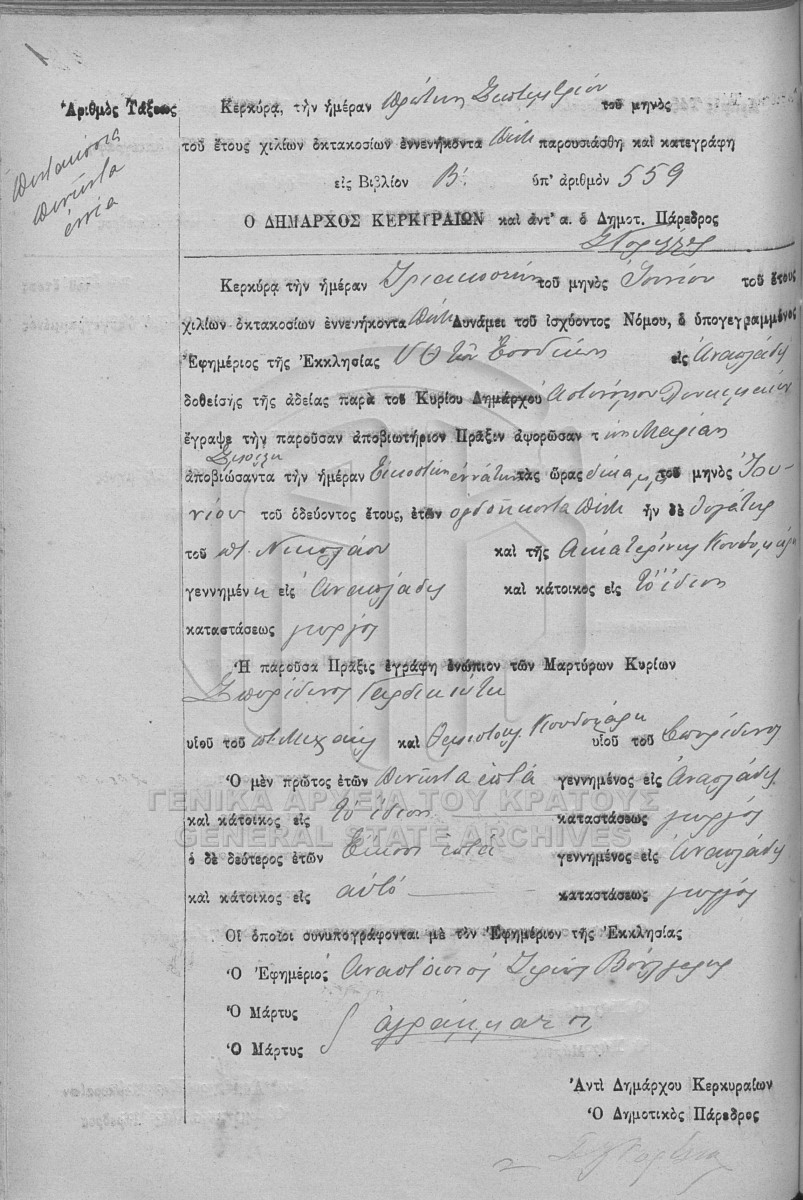 Ἀριθμὸς Τάξεως
πεντακόσια
πενῆντα
ἐννέα
Κερκύρᾳ, τὴν ἡμέραν πρώτην Σεπτεμβρίου τοῦ μηνὸς
τοῦ ἔτους χιλίων ὀκτακοσίων ἐννενήκοντα πέντε παρουσιάσθη καὶ κατεγράφη
εἰς Βιβλίον Β'. ὑπ' ἀριθμὸν 559
Ο ΔΗΜΑΡΧΟΣ ΚΕΡΚΥΡΑΙΩΝ καὶ ἀντ' α. ὁ Δημοτ. Πάρεδρος
Κερκύρᾳ τὴν ἡμέραν Τριακοστὴν τοῦ μηνὸς Ἰουνίου τοῦ ἔτους
χιλίων ὀκτακοσίων ἐννενήκοντα πέντε Δυνάμει τοῦ ἰσχύοντος Νόμου, ὁ ὑπογεγραμμένος
Ἐφημέριος τῆς Ἐκκλησίας Υ Θ τῶν εἰς Ἀναπλάδες
δοθείσης τῆς ἀδείας παρὰ τοῦ Κυρίου Δημάρχου Ἀστυνόμου Λευκιμμαίων
ἔγραψε τὴν παροῦσαν ἀποβιωτήριον Πρᾶξιν ἀφορῶσαν τ ὴν Μαρίαν
ἀποβιώσαντα τὴν ἡμέραν Εἰκοστὴν ἐννάτην τὰς ὥρας δέκα μ.μ. τοῦ μηνὸς Ἰου-
νίου τοῦ ὁδεύοντος ἔτους, ἐτῶν ὀγδοήκοντα πέντε ἦν δὲ θυγάτηρ
τοῦ π. Νικολάου καὶ τῆς Αἰκατερίνης Κουδομάρη
γεννημέν η εἰς Ἀναπλάδες καὶ κάτοικος εἰς τὸ ἴδιον
καταστάσεως γεωργός
Ἡ παροῦσα Πρᾶξις ἐγράφη ἐνώπιον τῶν Μαρτύρων Κυρίων
Σπυρίδωνος Γαρδικιώτη
υἱοῦ τοῦ π. Μιχαὴλ καὶ Θεμιστοκλ. Κουδομάρη υἱοῦ τοῦ Σπυρίδωνος
Ὁ μὲν πρῶτος ἐτῶν πενῆντα ἑπτά γεννημένος εἰς Ἀναπλάδες
καὶ κάτοικος εἰς τὸ ἴδιον καταστάσεως γεωργός
ὁ δὲ δεύτερος ἐτῶν Εἴκοσι ἑπτά γεννημένος εἰς Ἀναπλάδες
καὶ κάτοικος εἰς αὐτό καταστάσεως γεωργός
Οἱ ὁποῖοι συνυπογράφονται μὲ τὸν Ἐφημέριον τῆς Ἐκκλησίας
Ὁ Ἐφημέριος Ἀναστάσιος Ἱερεὺς Βούλγαρης
Ὁ Μάρτυς
ἀγράμματοι
Ὁ Μάρτυς
Ἀντὶ Δημάρχου Κερκυραίων
Ὁ Δημοτικὸς Πάρεδρος
ΓΕΝΙΚΑ ΑΡΧΕΙΑ ΤΟΥ ΚΡΑΤΟΥΣ
GENERAL STATE ARCHIVES